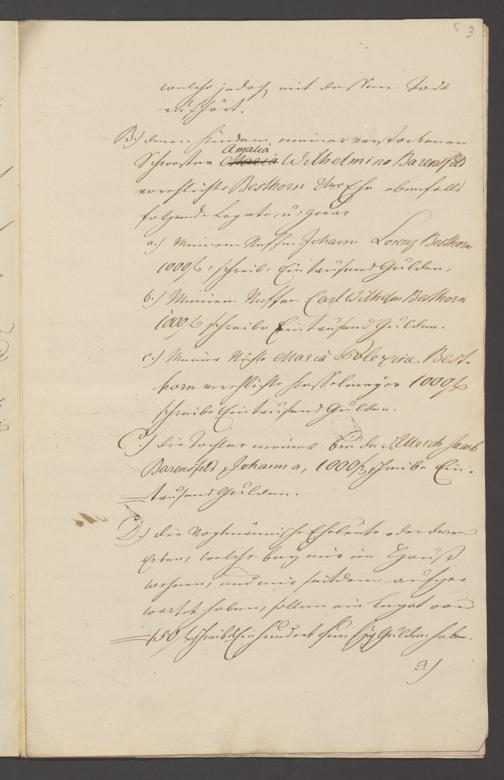 5 3
welche jedoch mit dessen Tode
aufhört.
B.) denen Kindern meiner verstorbenen
Amalia
Schwester Maria Wilhelmina Barensfeld
verehelichte Besthorn Ehe ebenfalls
folgende Legate, u: zwar
a.) Meinem Neffen Johann Lorenz Besthorn
1000 f schreibe Eintausend Gulden,
b.) Meinem Neffen Carl Wilhelm Besthorn
1000 f schreibe Eintausend Gulden.
c.) Meiner Nichte Maria Polexina Best-
horn verehlichte 1000 f
schreibe Eintausend Gulden.
C.) die Tochter meines Bruders Jacob
Barensfeld Johanna, 1000 f schreibe Ein-
tausend Gulden.
D.) die Eheleute oder deren
Erben, welche bey mir im Hauß
wohnen, und mir seitdem aufge-
wartet haben, sollen ein Legat von
150 f schreibe Einhundert Fünfzig Gulden haben.